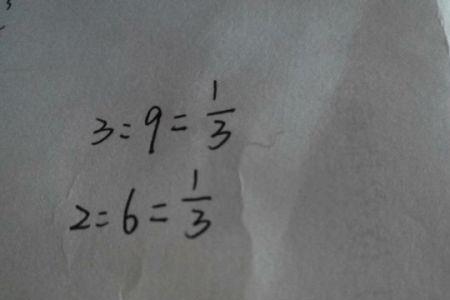 3:9=1/3
2=6=1/3